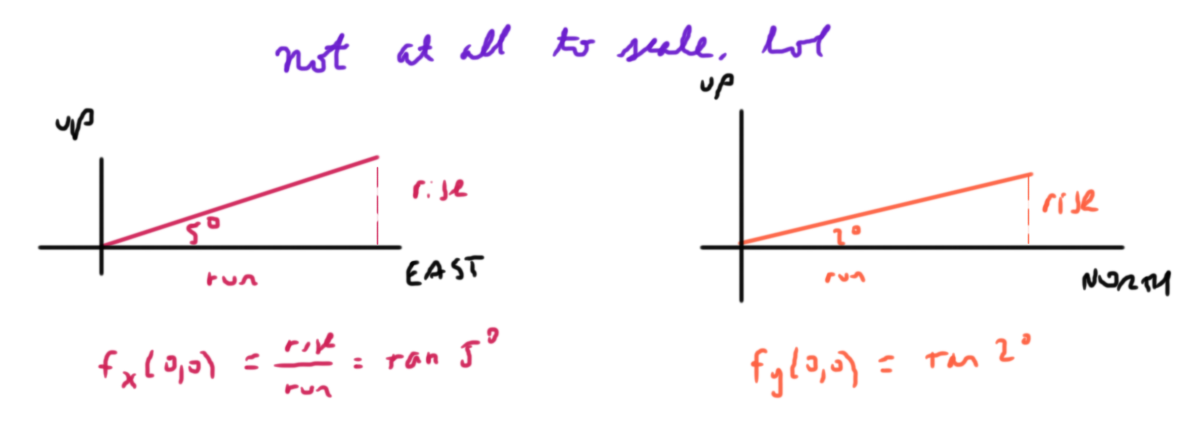 not at all to scale. lol
up
rise
5°
run
EAST
f_x(0,0) = rise/run = tan 5°
up
rise
2°
run
NORTH
f_y(0,0) = tan 2°